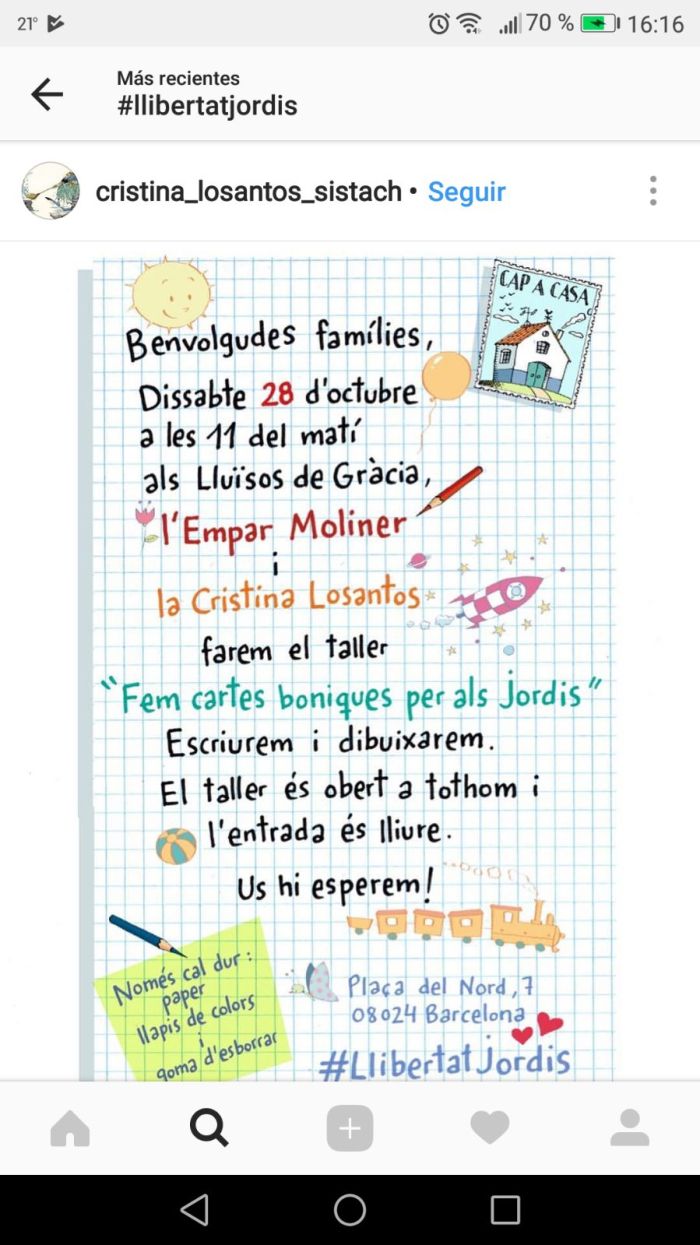 21°
70 %
16:16
Más recientes
#llibertatjordis
cristina_losantos_sistach • Seguir
CAP A CASA
Benvolgudes famílies,
Dissabte 28 d'octubre
a les 11 del matí
als Lluïsos de Gràcia,
l'Empar Moliner
i
la Cristina Losantos
farem el taller
"Fem cartes boniques per als jordis"
Escriurem i dibuixarem.
El taller és obert a tothom i
l'entrada és lliure.
Us hi esperem!
Només cal dur:
paper
llapis de colors
i
goma d'esborrar
Plaça del Nord, 7
08024 Barcelona
#Llibertatjordis